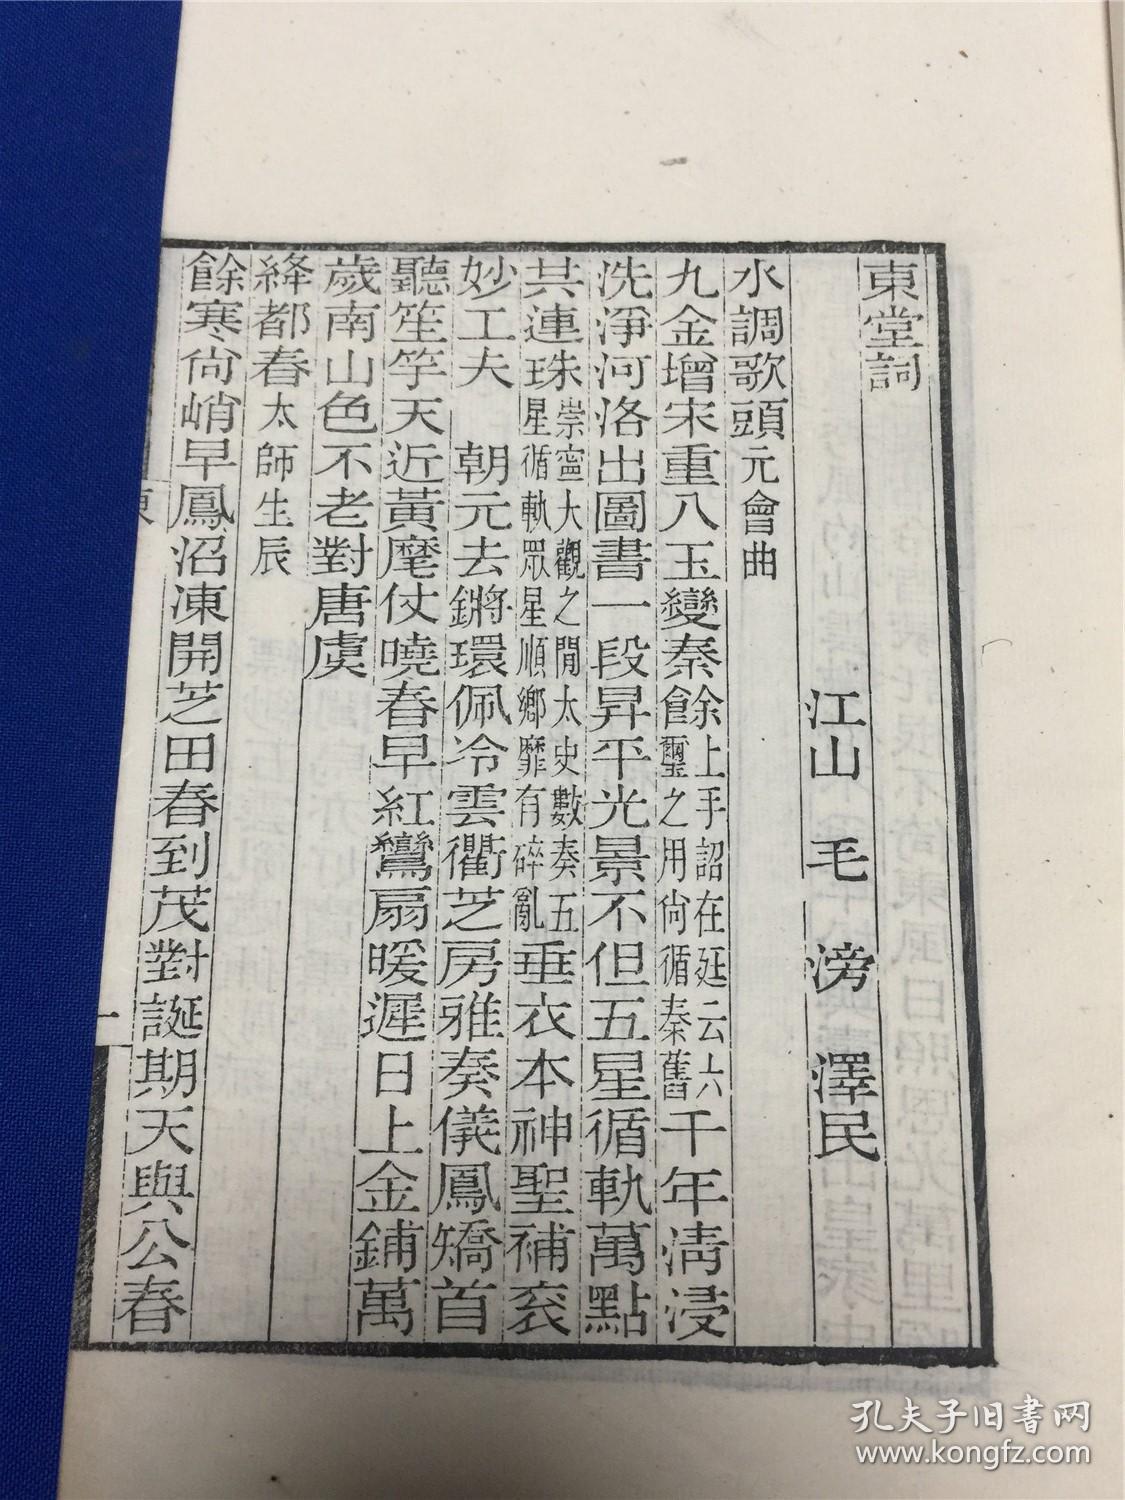 東堂詞
江山 毛 滂 澤民
水調歌頭 元會曲
九金增宋重八玉變秦餘 上手詔在延云六璽之用尙循秦舊 千年淸浸
洗淨河洛出圖書一段昇平光景不但五星循軌萬點
共連珠 崇寧大觀之間太史數奏五星循軌眾星順鄉靡有碎亂 垂衣本神聖補衮
妙工夫 朝元去鏘環佩冷雲衢芝房雅奏儀鳳矯首
聽笙竽天近黃麾仗曉春早紅鸞扇暖遲日上金鋪萬
歲南山色不老對唐虞
絳都春 太師生辰
餘寒尙峭早鳳沼凍開芝田春到茂對誕期天與公春
東
一
孔夫子旧书网
www.kongfz.com